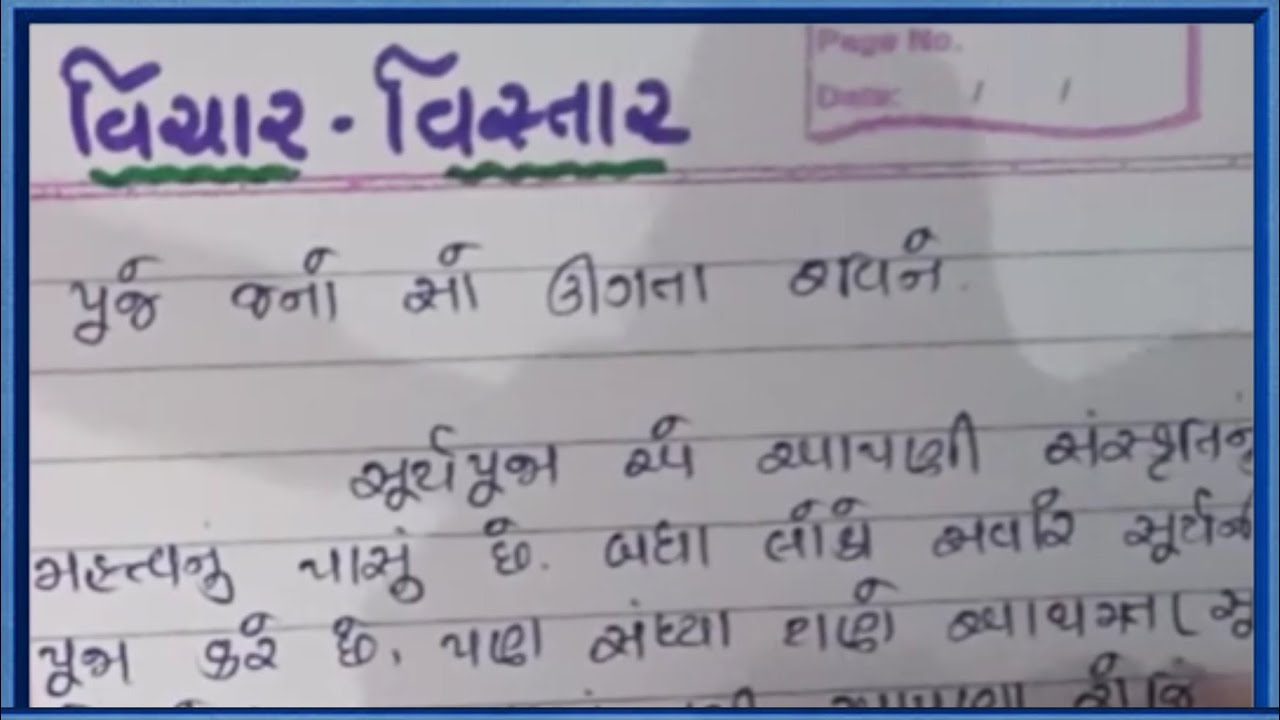 વિચાર - વિસ્તાર
Page No.
Date: / /
પૂજે જનો સૌ ઊગતા રવિને.
સૂર્યપૂજા એ આપણી સંસ્કૃતિનું
મહત્ત્વનું પાસું છે. બધા લોકો સવારે સૂર્યની
પૂજા કરે છે, પણ સંધ્યા ટાણે